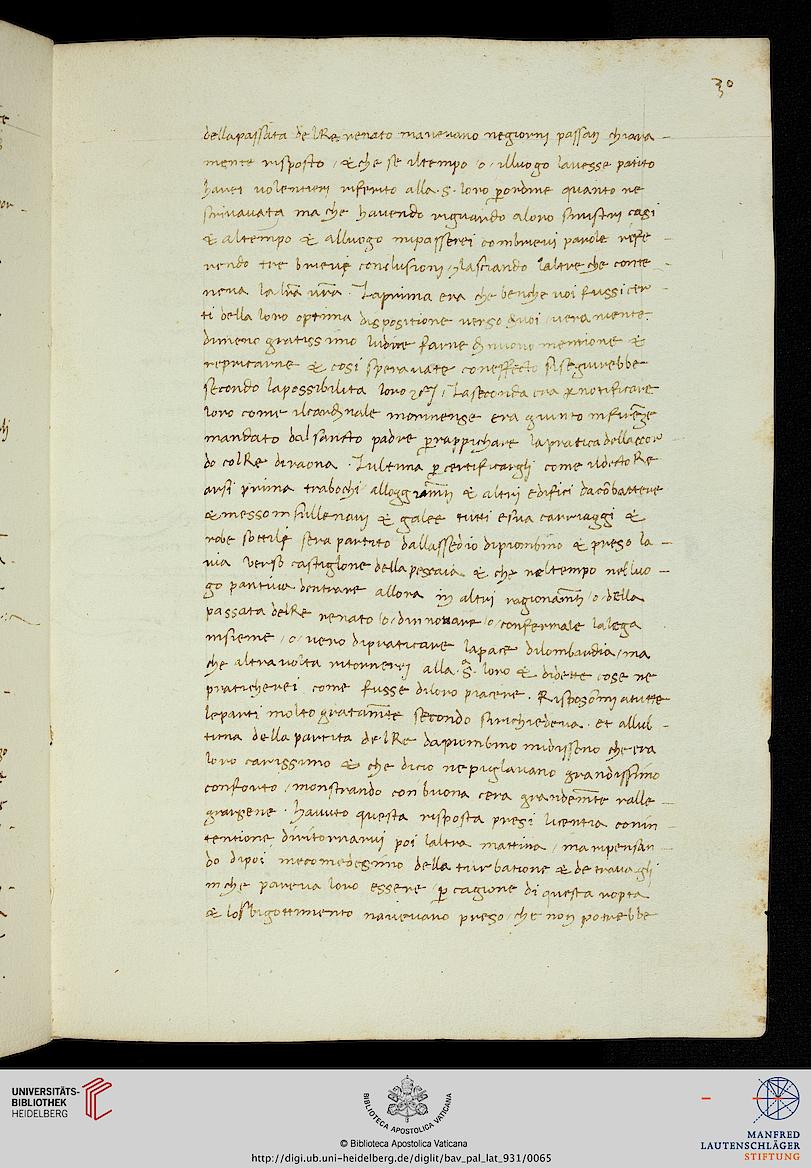 30
dellapassata delRe renato manevano negiorni passati chiara
mente risposto / & che se iltempo / o / illuogo lavesse patito
harei volentieri riferito alla .S. loro p ordine quanto ne
scrivavata ma che havendo riguardo aloro sinistri casi
& altempo & alluogo mipasserei combrievi parole rife
rendo tre brieve conclusioni / lasciando laltre che conte
neva la lra vra . Laprima era che benche voi fussi cer
ti della loro optima dispositione verso di voi / veramente
dimeno gratissimo ludire farne di nuovo mentione &
repricarne & cosi speravate coneffecto si seguirebbe
secondo lapossibilita loro / Laseconda era p notificare
loro come ilcardinale morinense era giunto in firenze
mandato dal sancto padre p rappichare la pratica dellaccor
do colRe diraona . Lultima p certificargli come ildecto Re
arsi prima trabochi / alloggiamti & altri edifici dacobattere
& messo in sullenavi & galee tutti esua carriaggi &
robe sottili sera partito dallassedio dipiombino & preso la
via verso castiglone della pescaia & che neltempo nelluo
go pariva dentrare allora in altri ragionamti / o / della
passata delRe renato / o / dinnovare / o / confermare lalega
insieme / o / vero dipraticare lapace dilombardia / ma
che altravolta ritornerei alla .S. loro & didette cose ne
praticherei come fusse diloro piacere . Risposomi atutte
leparti molto gratamte secondo sirichiedeva . et allul
tima della partita delRe dapiombino midisseno che era
loro carissimo & che dicio ne piglavano grandissimo
conforto / monstrando con buona cera grandemte ralle
grarsene . Havuto questa risposta presi licentia conin
tentione diritornarvi poi laltra mattina / ma ripensan
do dipoi mecomedesimo della turbatione & de travagli
in che pareva loro essere p cagione di questa ropta
& losbigottimento navevano preso / che non potrebbe
UNIVERSITÄTS-
BIBLIOTHEK
HEIDELBERG
BIBLIOTECA APOSTOLICA VATICANA
© Biblioteca Apostolica Vaticana
http://digi.ub.uni-heidelberg.de/diglit/bav_pal_lat_931/0065
MANFRED
LAUTENSCHLÄGER
STIFTUNG